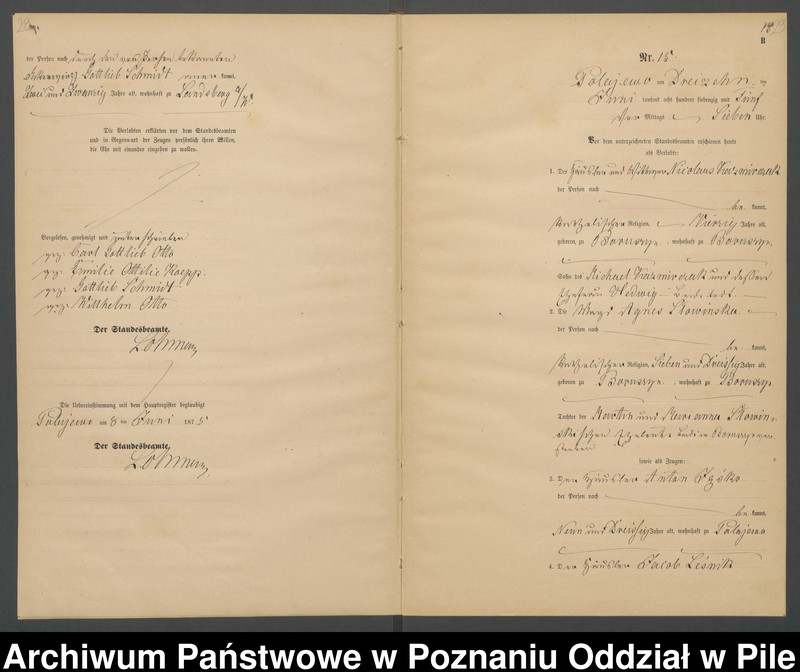 der Person nach durch den von Person bekannten
Gottlieb Schmidt kannt,
Zwei und Zwanzig Jahre alt, wohnhaft zu Landsberg a/W.
Die Verlobten erklärten vor dem Standesbeamten
und in Gegenwart der Zeugen persönlich ihren Willen,
die Ehe mit einander eingehen zu wollen.
Vorgelesen, genehmigt und unterschrieben
gez. Carl Gottlieb Otto
gez. Emilie Ottilie Koepp.
gez. Gottlieb Schmidt
gez. Wilhelm Otto
Der Standesbeamte,
Die Uebereinstimmung mit dem Hauptregister beglaubigt
Polajewo am 8 ten Juni 1875
Der Standesbeamte,
B
Nr. 15.
Polajewo am Dreizehn
Juni tausend acht hundert siebenzig und Fünf
Vor Mittags Sieben Uhr.
Vor dem unterzeichneten Standesbeamten erschienen heute
als Verlobte:
1. Der Häusler und Wittwer Nicolaus Kazmirczak
der Person nach
be kannt,
katholischer Religion, Vierzig Jahre alt,
geboren zu Boruszyn, wohnhaft zu Boruszyn
Sohn des Michael Kazmirczak und dessen
Ehefrau Hedwig
2. Die Magd Agnes Slowinska
der Person nach
be kannt,
katholischer Religion, Sieben und Dreissig Jahre alt,
geboren zu Boruszyn, wohnhaft zu Boruszyn
Tochter des Martin und Marianna Slowin-
skischen Eheleute
sowie als Zeugen:
3. Der Häusler Anton
der Person nach
be kannt,
Neun und Dreissig Jahre alt, wohnhaft zu Polajewo
4. Der Häusler Jacob Leśnik
Archiwum Państwowe w Poznaniu Oddział w Pile